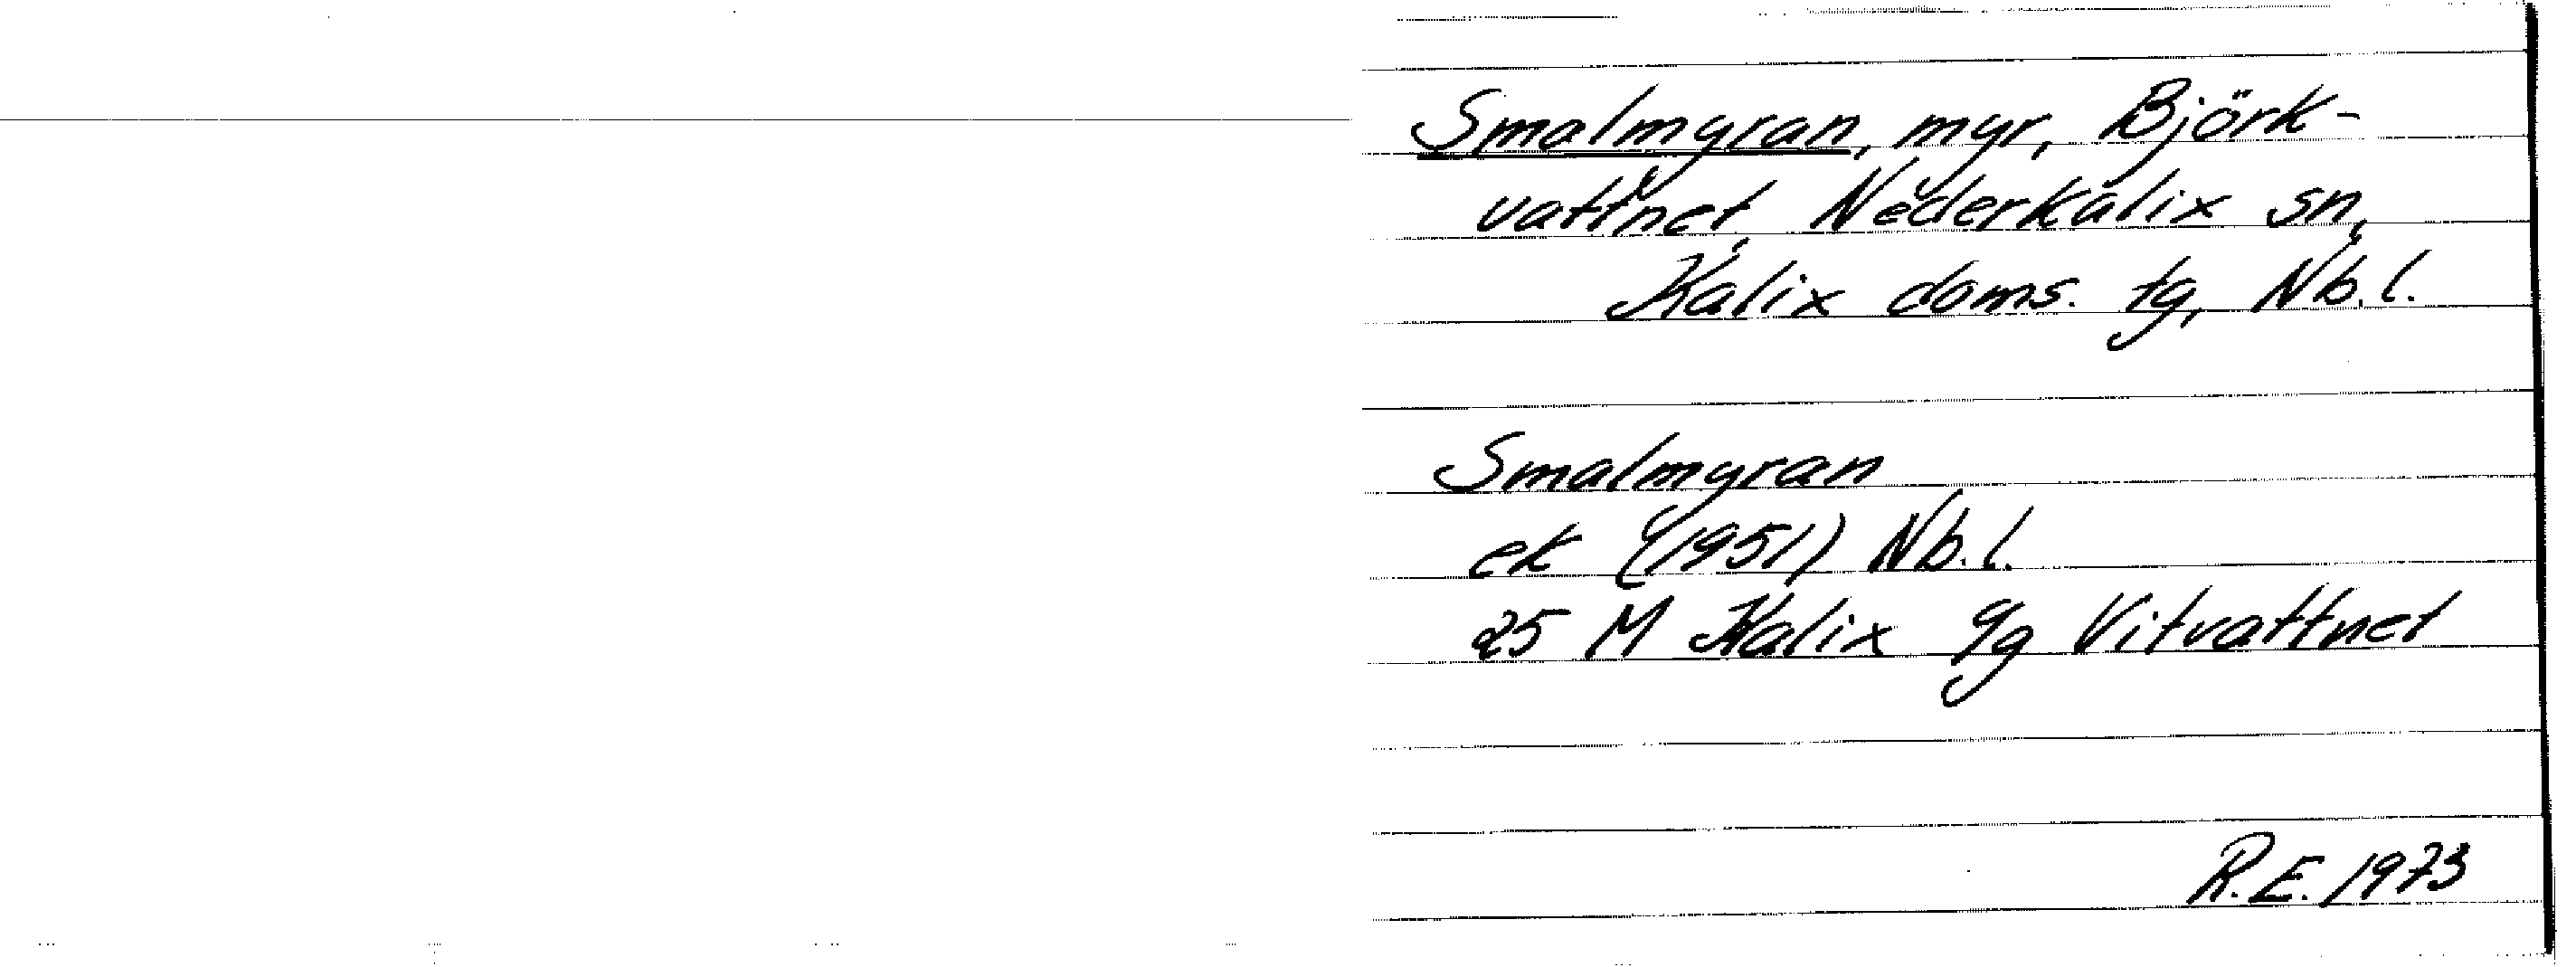 Smalmyran, myr, Björk-
vattnet, Nederkalix sn,
Kalix doms. tg, Nb.l.
Smalmyran
ek (1951) Nb.l.
25 M Kalix 9g Vitvattnet
R.E. 1973